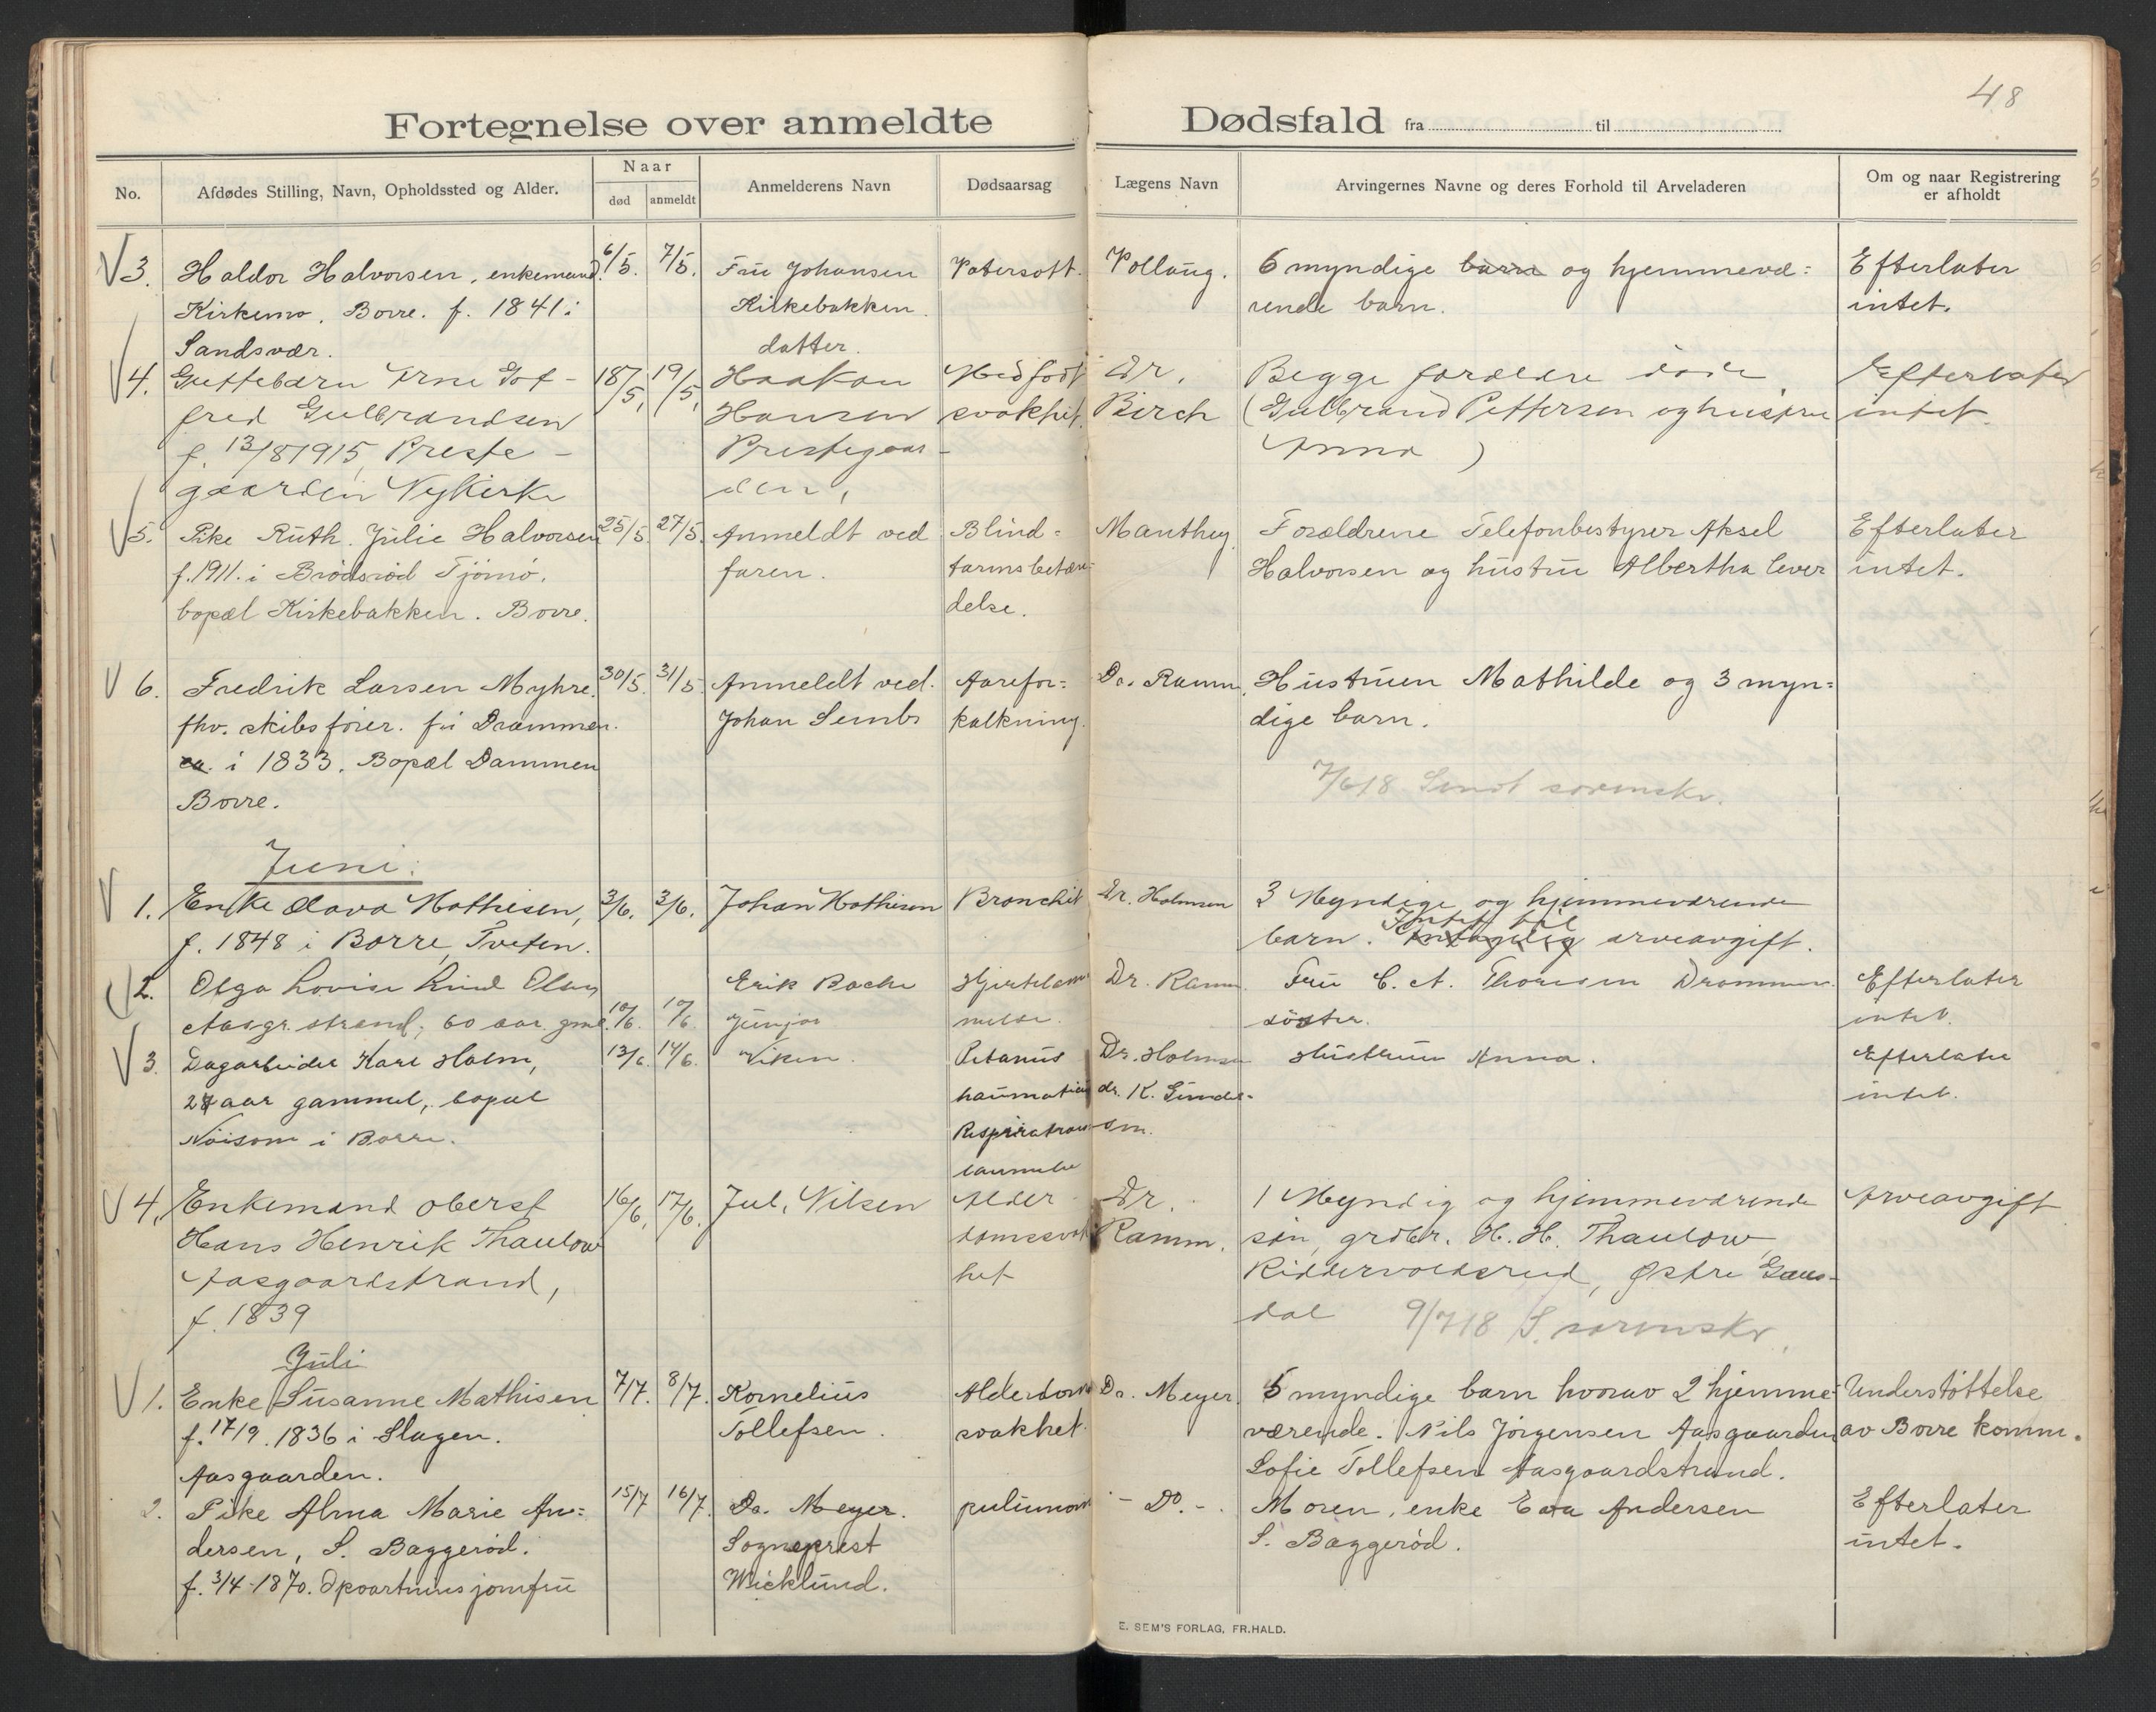 48
Fortegnelse over anmeldte Dødsfald fra til
No.
Afdødes Stilling, Navn, Opholdssted og Alder.
Naar
død anmeldt
Anmelderens Navn
Dødsaarsag
Lægens Navn
Arvingernes Navne og deres Forhold til Arveladeren
Om og naar Registrering
er afholdt
V 3. Haldor Halvorsen, enkemand. 6/5. 7/5. Fru Johansen Vatersott. Pollang. 6 myndige barn og hjemmevæ= Efterlater
Kirkemo, Borre. f. 1841 i Kirkebakken. rende barn. intet.
Sandsvær. datter.
V 4. Guttebarn Arne Got- 18/5, 19/5, Haakon Medfødt Dr. Begge forældre døde, Efterlater
fred Gulbrandsen Hansen svakhet. Birch (Gulbrand Pettersen og hustru intet.
f. 13/8 1915, Preste- Prestegaar- Anna)
gaarden Nykirke den,
V 5. Pike Ruth Julie Halvorsen 25/5. 27/5. Anmeldt ved Blind= Manthey. Forældrene Telefonbestyrer Aksel Efterlater
f. 1911. i Brødsrød Tjömö, faren. tarmsbetæn- Halvorsen og hustru Albertha lever intet.
bopæl Kirkebakken. Borre. delse.
V 6. Fredrik Larsen Myhre. 30/5. 31/5. Anmeldt ved. Aarefor= Dr. Ramm. Hustruen Mathilde og 3 myn=
fhv. skibsfører. f. i Drammen. Johan Sembs kalkning. dige barn.
i 1833. Bopæl Dammen 7/6 18 Sendt sorenskr.
Borre.
Juni:
V 1. Enke Olava Mathisen, 3/6. 3/6. Johan Mathisen Bronchit Dr. Holmsen 3 Myndige og hjemmeværende
f. 1848 i Borre, Tveten. barn. Intet til arveavgift.
V 2. Olga Lovise Lind Olsen Erik Bache Hjertelam- Dr. Ramm. Fru C. A. Thoresen Drammen. Efterlater
Aasgr.strand, 60 aar gml. 10/6. 10/6 junior melse. söster. intet.
V 3. Dagarbeider Karl Holm, 13/6. 14/6. Viken. Tetanus Dr. Holmsen Hustruen Anna. Efterlater
27 aar gammel, bopæl dr. K. Gunder- intet.
Nöisom i Borre. Respirations- sen.
lammelse
V 4. Enkemand oberst 16/6, 17/6. Jul. Nilsen Alder- Dr. 1 Myndig og hjemmeværende Arveavgift
Hans Henrik Thaulow domssvak- Ramm. søn, grdbr. H. H. Thaulow,
Aasgaardstrand, het Riddervoldsreid, Østre Gaus-
f. 1839 dal 9/7 18 S. sorenskr.
Juli
V 1. Enke Susanne Mathisen 7/7. 8/7. Kornelius Alderdoms Dr. Meyer. 5 myndige barn hvorav 2 hjemme- Understöttelse
f. 17/9. 1836 i Slagen. Tollefsen. svakhet. værende. Nils Jörgensen Aasgaarden av Borre komm.
Aasgaarden. Sofie Tollefsen Aasgaardstrand.
2. Pike Alma Marie An= 15/7 16/7. Dr. Meyer. -Do.-. Moren, enke Eva Andersen Efterlater
dersen, S. Baggeröd. Sogneprest S. Baggeröd. intet.
f. 3/4-1870. jomfru Wicklund.
E. SEM'S FORLAG, FR.HALD.